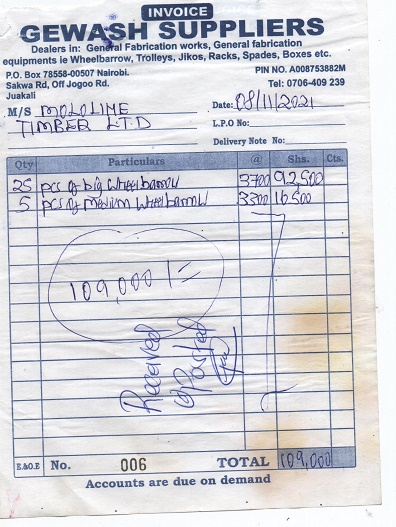 INVOICE
GEWASH SUPPLIERS
Dealers in: General Fabrication works, General fabrication
equipments ie Wheelbarrow, Trolleys, Jikos, Racks, Spades, Boxes etc.
P.O. Box 78558-00507 Nairobi. PIN NO. A008753882M
Sakwa Rd, Off Jogoo Rd. Tel: 0706-409 239
Juakali
M/S MOLOLINE Date: 08/11/2021
TIMBER LTD L.P.O No:
Delivery Note No:
Qty Particulars @ Shs. Cts.
25 pcs of big wheelbarrow 3700 92,500
5 pcs of medium wheelbarrow 3300 16500
109,000/=
Received
Posted
E.&O.E No. 006 TOTAL 109,000
Accounts are due on demand